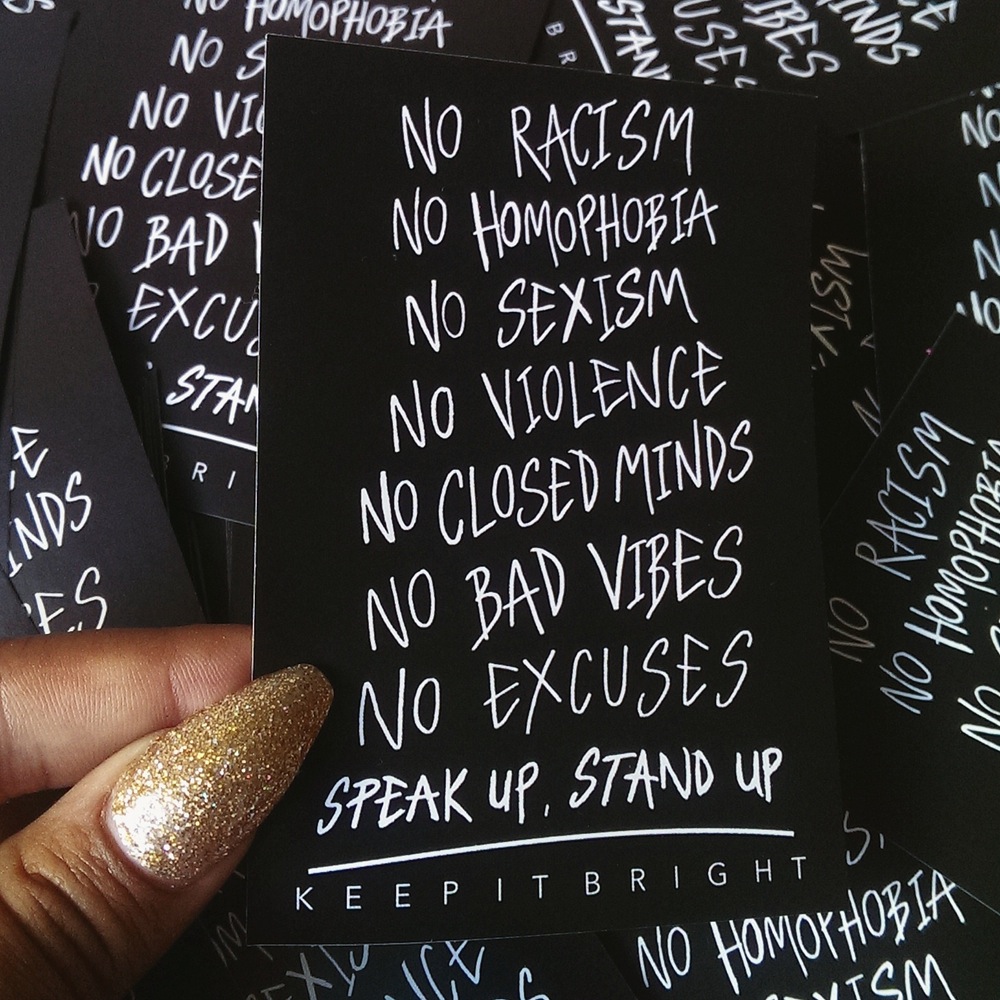 NO RACISM
NO HOMOPHOBIA
NO SEXISM
NO VIOLENCE
NO CLOSED MINDS
NO BAD VIBES
NO EXCUSES
SPEAK UP, STAND UP
KEEPITBRIGHT
NO HOMOPHOBIA
NO
NO
NO CLOSE
NO BAD
EXCU
STAN
RI
NDS
NO RACISM
NO HOMOPHOBIA
NO
NO HOMOPHOBIA